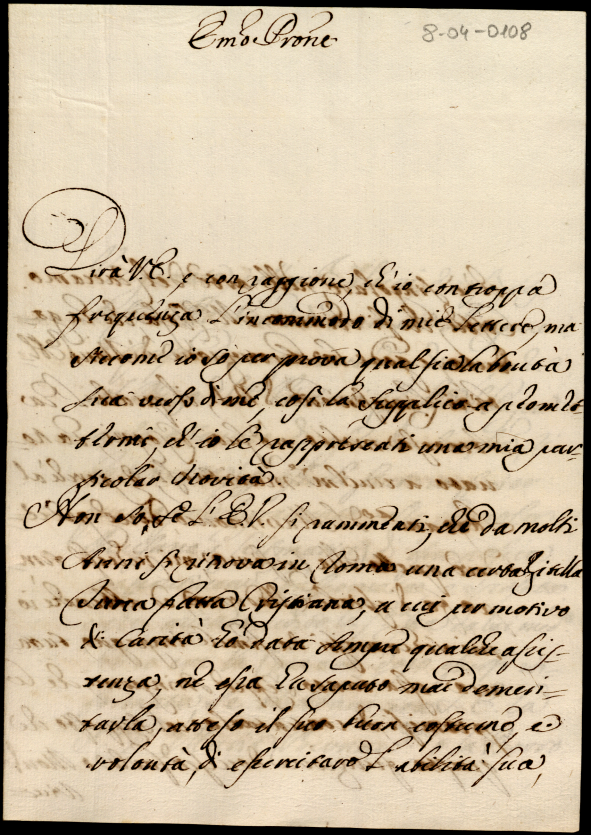 8-04-0108
Emo Prone
Dirà V.E. e con raggione, ch'io con troppa
frequenza l'incommodo di mie lettere, ma
siccome io so per prova qual sia la bontà
sua verso di me, così la supplico a
ch'io le rappresenti una mia par-
ticolar
Non so, se l'E.V. si rammenti, che da molti
anni si ritrova in Roma una certa Zitella
Turca fatta Cristiana, a cui per motivo
di Carità hò data sempre qualche assis-
tenza, nè essa hà saputo mai demeri-
tarla, atteso il suo buon costume, e
volontà di esercitare l'abilità sua,